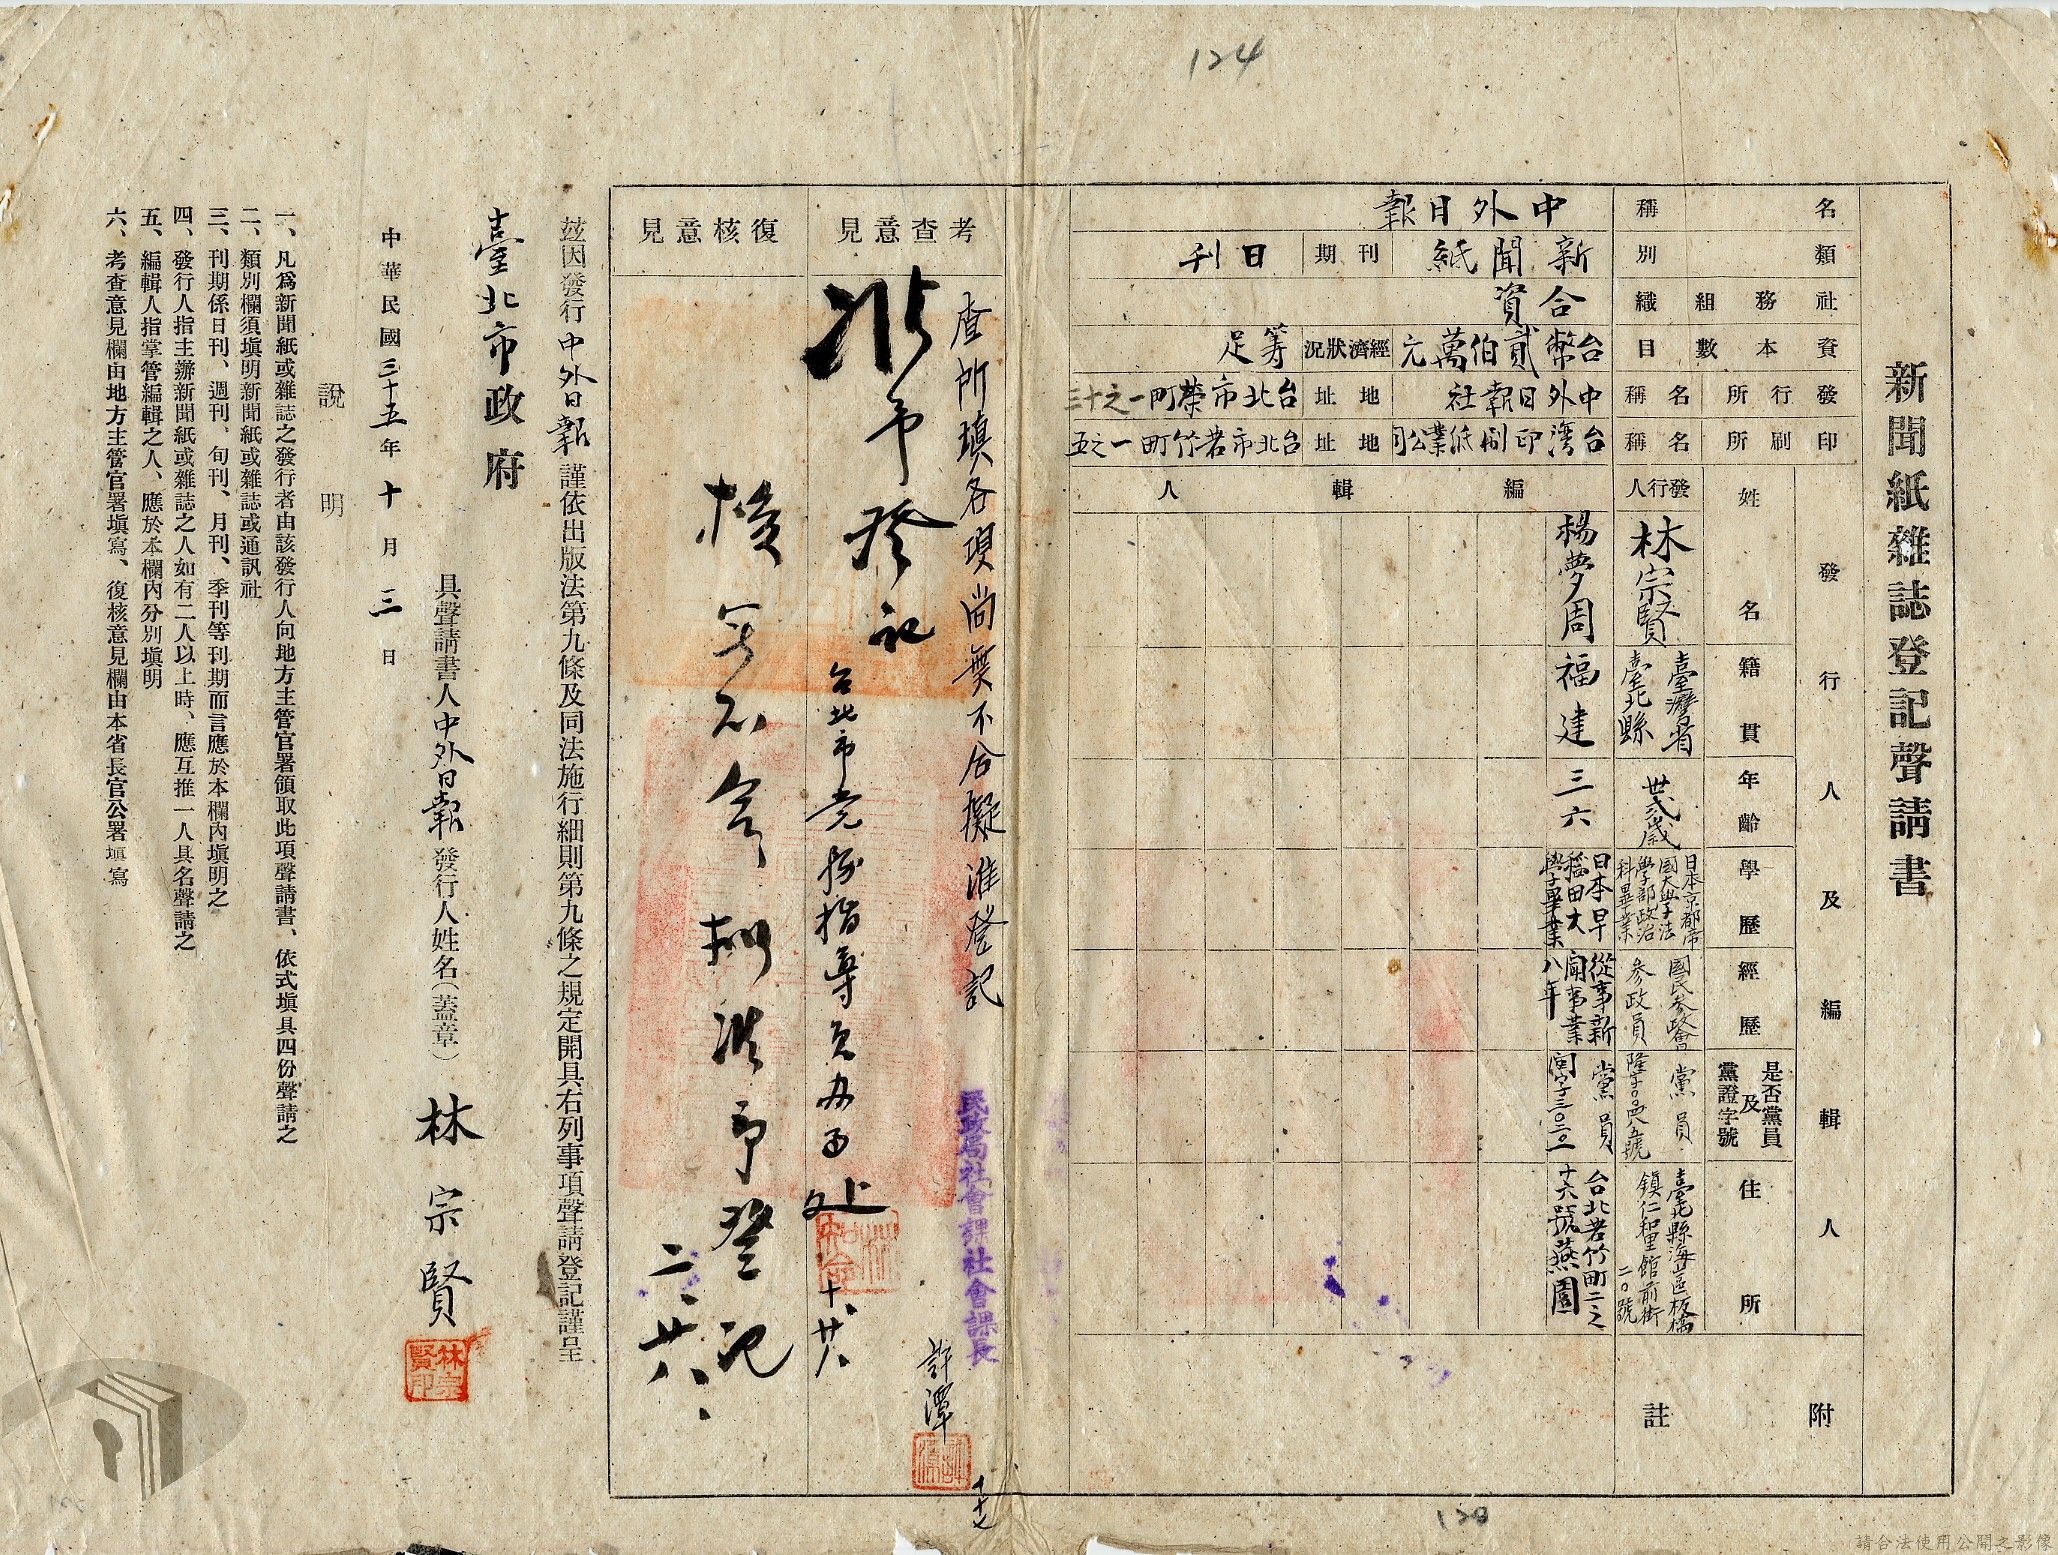 124
新聞紙雜誌登記聲請書
名稱 中外日報
類別 新聞紙 刊期 日刊
社務組織 合資
資本數目 台幣貳佰萬元 經濟狀況 籌足
發行所名稱 中外日報社 地址 台北市榮町一之十三
印刷所名稱 台灣印刷紙業公司 地址 台北市若竹町一之五
發行人及編輯人
姓名 籍貫 年齡 學歷 經歷 是否黨員及黨證字號 住所
發行人 林宗賢 臺灣省臺北縣 卅貳歲 日本京都帝國大學法學部政治科畢業 國民參政會參政員 黨員 臺北縣海山區板橋鎮仁和里館前街二〇號
編輯人 楊夢周 福建 三六 日本早稻田大學畢業 從事新聞事業八年 黨員 閩字三〇二二一 台北若竹町二之十六號燕園
附註
考查意見
查所填各項尚無不合擬准登記
民政局社會課社會課長
許潭
准予登記
台北市党務指導員办事处 十、廿八、
復核意見
核定不合擬准予登記
二、廿八、
茲因發行中外日報謹依出版法第九條及同法施行細則第九條之規定開具右列事項聲請登記謹呈
臺北市政府
具聲請書人中外日報發行人姓名（蓋章）林宗賢
林宗賢印
中華民國三十五年十月三日
說明
一、凡爲新聞紙或雜誌之發行者由該發行人向地方主管官署領取此項聲請書、依式塡具四份聲請之
二、類別欄須塡明新聞紙或雜誌或通訊社
三、刊期係日刊、週刊、旬刊、月刊、季刊等刊期而言應於本欄內塡明之
四、發行人指主辦新聞紙或雜誌之人如有二人以上時、應互推一人具名聲請之
五、編輯人指掌管編輯之人、應於本欄內分別塡明
六、考查意見欄由地方主管官署塡寫、復核意見欄由本省長官公署塡寫
120
請合法使用公開之影像